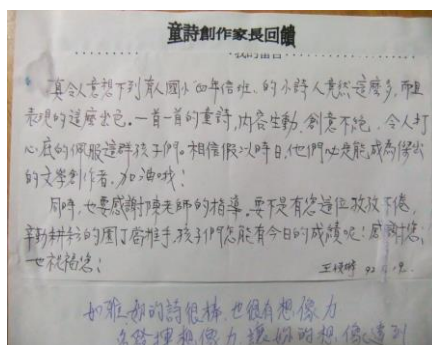 童詩創作家長回饋
真令人意想不到育人國小 四年信班、的小詩人竟然這麼多,而且
表現的這麼出色。一首一首的童詩,內容生動、創意不絕,令人打
心底的佩服這群孩子們。相信假以時日,他們必定能成為傑出
的文學創作者。加油哦!
同時,也要感謝陳老師的指導。要不是有您這位孜孜不倦,
辛勤耕耘的園丁當推手,孩子們怎能有今日的成績呢!感謝您,
也祝福您!
如雅:妳的詩很棒,也很有想像力